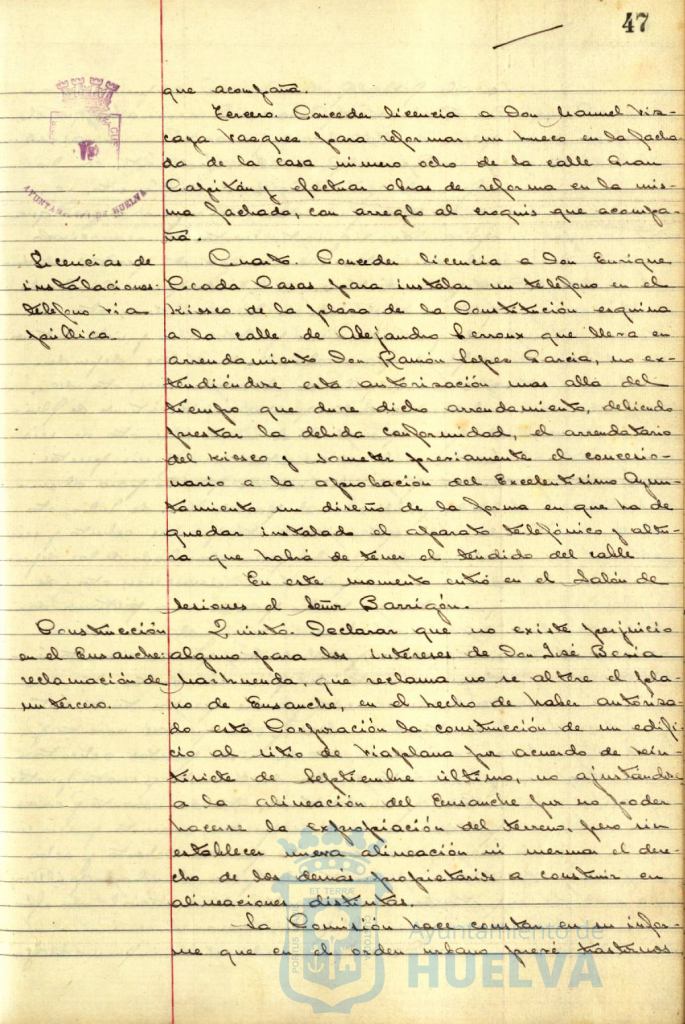 47
que acompaña.
Tercero. Conceder licencia a Don Manuel Viz-
caya Vazquez para reformar un hueco en la facha-
da de la casa número ocho de la calle Gran
Capitán y efectuar obras de reforma en la mis-
ma fachada, con arreglo al croquis que acompa-
ña.
AYUNTAMIENTO DE HUELVA
Licencias de
instalaciones-
teléfono vía
pública.
Cuarto. Conceder licencia a Don Enrique
Casas para instalar un teléfono en el
Kiosco de la plaza de la Constitución esquina
a la calle de Alejandro Lerroux que lleva en
arrendamiento Don Ramón Lopez Garcia, no ex-
tendiéndose esta autorización mas allá del
tiempo que dure dicho arrendamiento, debiendo
prestar la debida conformidad, el arrendatario
del Kiosco y someter previamente el concesio-
nario a la aprobación del Excelentísimo Ayun-
tamiento un diseño de la forma en que ha de
quedar instalado el aparato telefónico y altu-
ra que habrá de tener el tendido del cable
En este momento entró en el Salón de
sesiones el Señor Barrigón.
Construcción
en el Ensanche:
reclamación de
un tercero.
Quinto. Declarar que no existe perjuicio
alguno para los intereses de Don José
Marhuenda, que reclama no se altere el pla-
no de Ensanche, en el hecho de haber autoriza-
do esta Corporación la construcción de un edifi-
cio al sitio de Viaplana por acuerdo de vein-
tisiete de Septiembre último, no ajustándose
a la alineación del Ensanche por no poder
hacerse la expropiación del terreno, pero sin
establecer nueva alineación ni mermar el dere-
cho de los demás propietarios a construir en
alineaciones distintas.
La Comisión hace constar en su infor-
me que en el orden urbano prevé trastornos
Ayuntamiento de
HUELVA